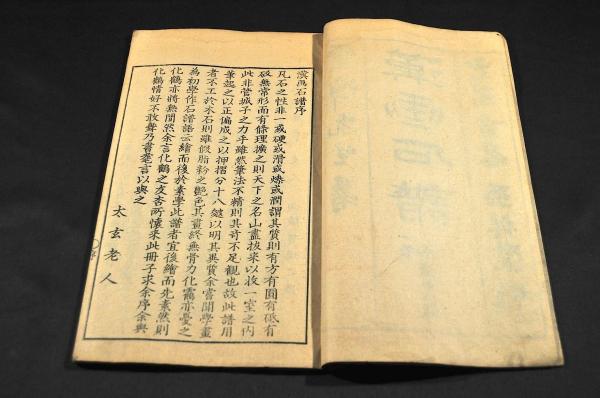 漢画石譜序
凡石之性非一或硬或滑或燥或潤謂其質則有方有圓有砥有
破無常形而有條理擴之則天下之名山盡拔来以收一室之内
此非管城子之力乎雖然筆法不精則其奇不足觀也故此譜用
筆起之以正偏成之以押摺分十八皴以明其異質余嘗聞學畫
者不工於水石則雖假脂粉之艶色其畫終無骨力化靏亦憂之
為初學作石譜語云繪而後於素學此譜者宜後繪而先素然則
化鶴亦將無閒然余言化鶴之友杏所懷来此冊子求余序余與
化鶴情好不敢乃書蹇言以與之
太玄老人